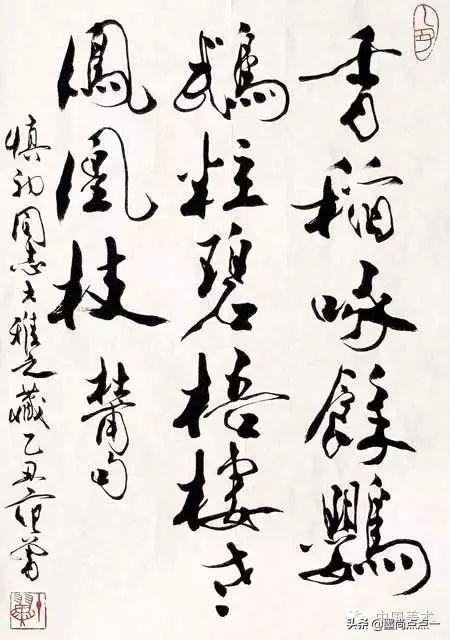 香稻啄餘鸚
鵡粒碧梧棲老
鳳凰枝 杜甫句
慎初同志大雅之藏乙丑范曾
中国美术
头条 @墨尚点点一